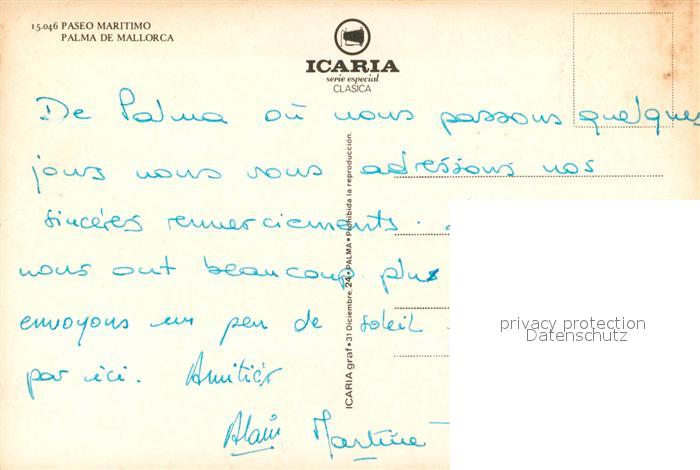 15.046 PASEO MARITIMO
PALMA DE MALLORCA
ICARIA
serie especial
CLASICA
De Palma où nous passons quelques
jours nous vous adressons nos
sincères remerciements.
nous ont beaucoup plus
envoyons un peu de soleil
par ici. Amitiés
Alain Martine
ICARIA graf • 31 Diciembre, 24 • PALMA • Prohibida la reproducción.
privacy protection
Datenschutz